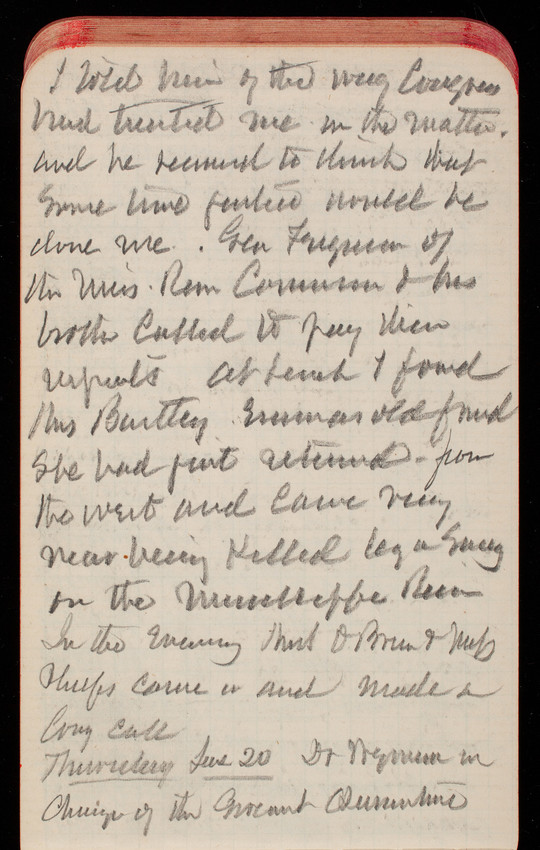 I told him of the way Congress
had treated me in the matter.
and he seemed to think that
some time justice would be
done me. Gen Ferguson of
the Miss. River Commission & his
brother called to pay their
respects At lunch I found
Mrs Bartley Emmas old friend
She had just returned from
the west and came very
near being killed by a Snag
on the Mississippi River
In the Evening & Miss
Phelps came in and made a
long call
Thursday 20 Dr Wyman in
Charge of the Quarantine